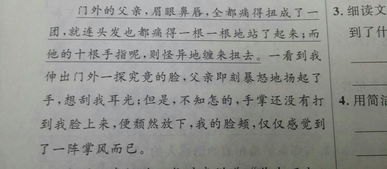 门外的父亲，眉眼鼻唇，全都痛得扭成了一
团，就连头发也都痛得一根一根地站了起来；而
他的十根手指呢，则怪异地缠来扭去。一看到我
伸出门外一探究竟的脸，父亲即刻暴怒地扬起了
手，想刮我耳光；但是，不知怎的，手掌还没有打
到我脸上来，便颓然放下，我的脸颊，仅仅感觉到
了一阵掌风而已。
3. 细读文
到了什
4. 用简洁